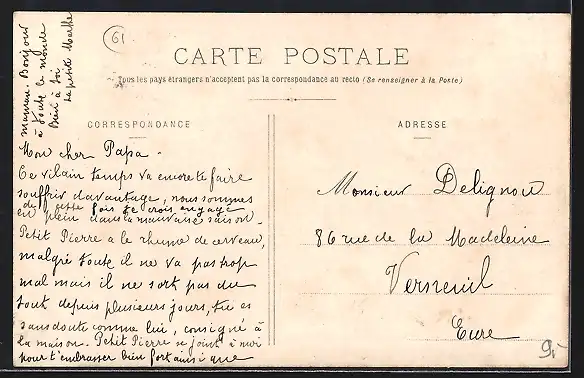 61
CARTE POSTALE
Tous les pays étrangers n'acceptent pas la correspondance au recto (Se renseigner à la Poste)
CORRESPONDANCE
Mon cher Papa -
Ce vilain temps va encore te faire
souffrir davantage, nous sommes
de cette fois je crois engagé
en plein dans la mauvaise saison -
Petit Pierre a le rhume de cerveau,
malgré toute il ne va pas trop
mal mais il ne sort pas du
tout depuis plusieurs jours, tu es
sans doute comme lui, consigné à
la maison. Petit Pierre se joint à moi
pour t'embrasser bien fort ainsi que
maman. Bonjour
à toute le monde
Bien à toi
ta petite Marthe
ADRESSE
Monsieur Delignou
86 rue de la Madeleine
Verneuil
Eure
9,-